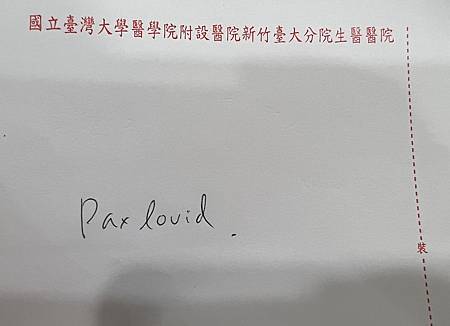 國立臺灣大學醫學院附設醫院新竹臺大分院生醫醫院
Paxlovid.
裝